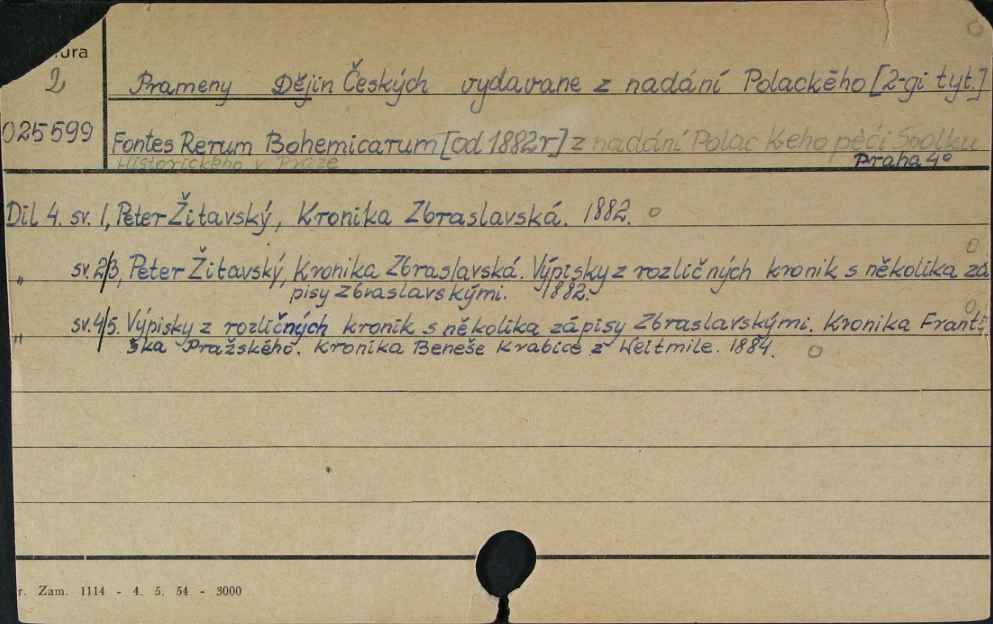 ura
2
Prameny Dějin Českých vydavane z nadání Polackého [2-gi tyt.]
025599
Fontes Rerum Bohemicarum [od 1882r] z nadání Polackeho péči Spolku
Historického v Praze
Praha 4°
Dil 4. sv. 1, Peter Žitavský, Kronika Zbraslavská. 1882.
„ sv. 2/3, Peter Žitavský, Kronika Zbraslavská. Výpisky z rozličných kronik s několika zá
pisy Zbraslavskými. 1882.
„ sv. 4/5. Výpisky z rozličných kronik s několika zápisy Zbraslavskými. Kronika Franti
ška Pražského. Kronika Beneše Krabice z Weitmile. 1884.
r. Zam. 1114 - 4. 5. 54 - 3000